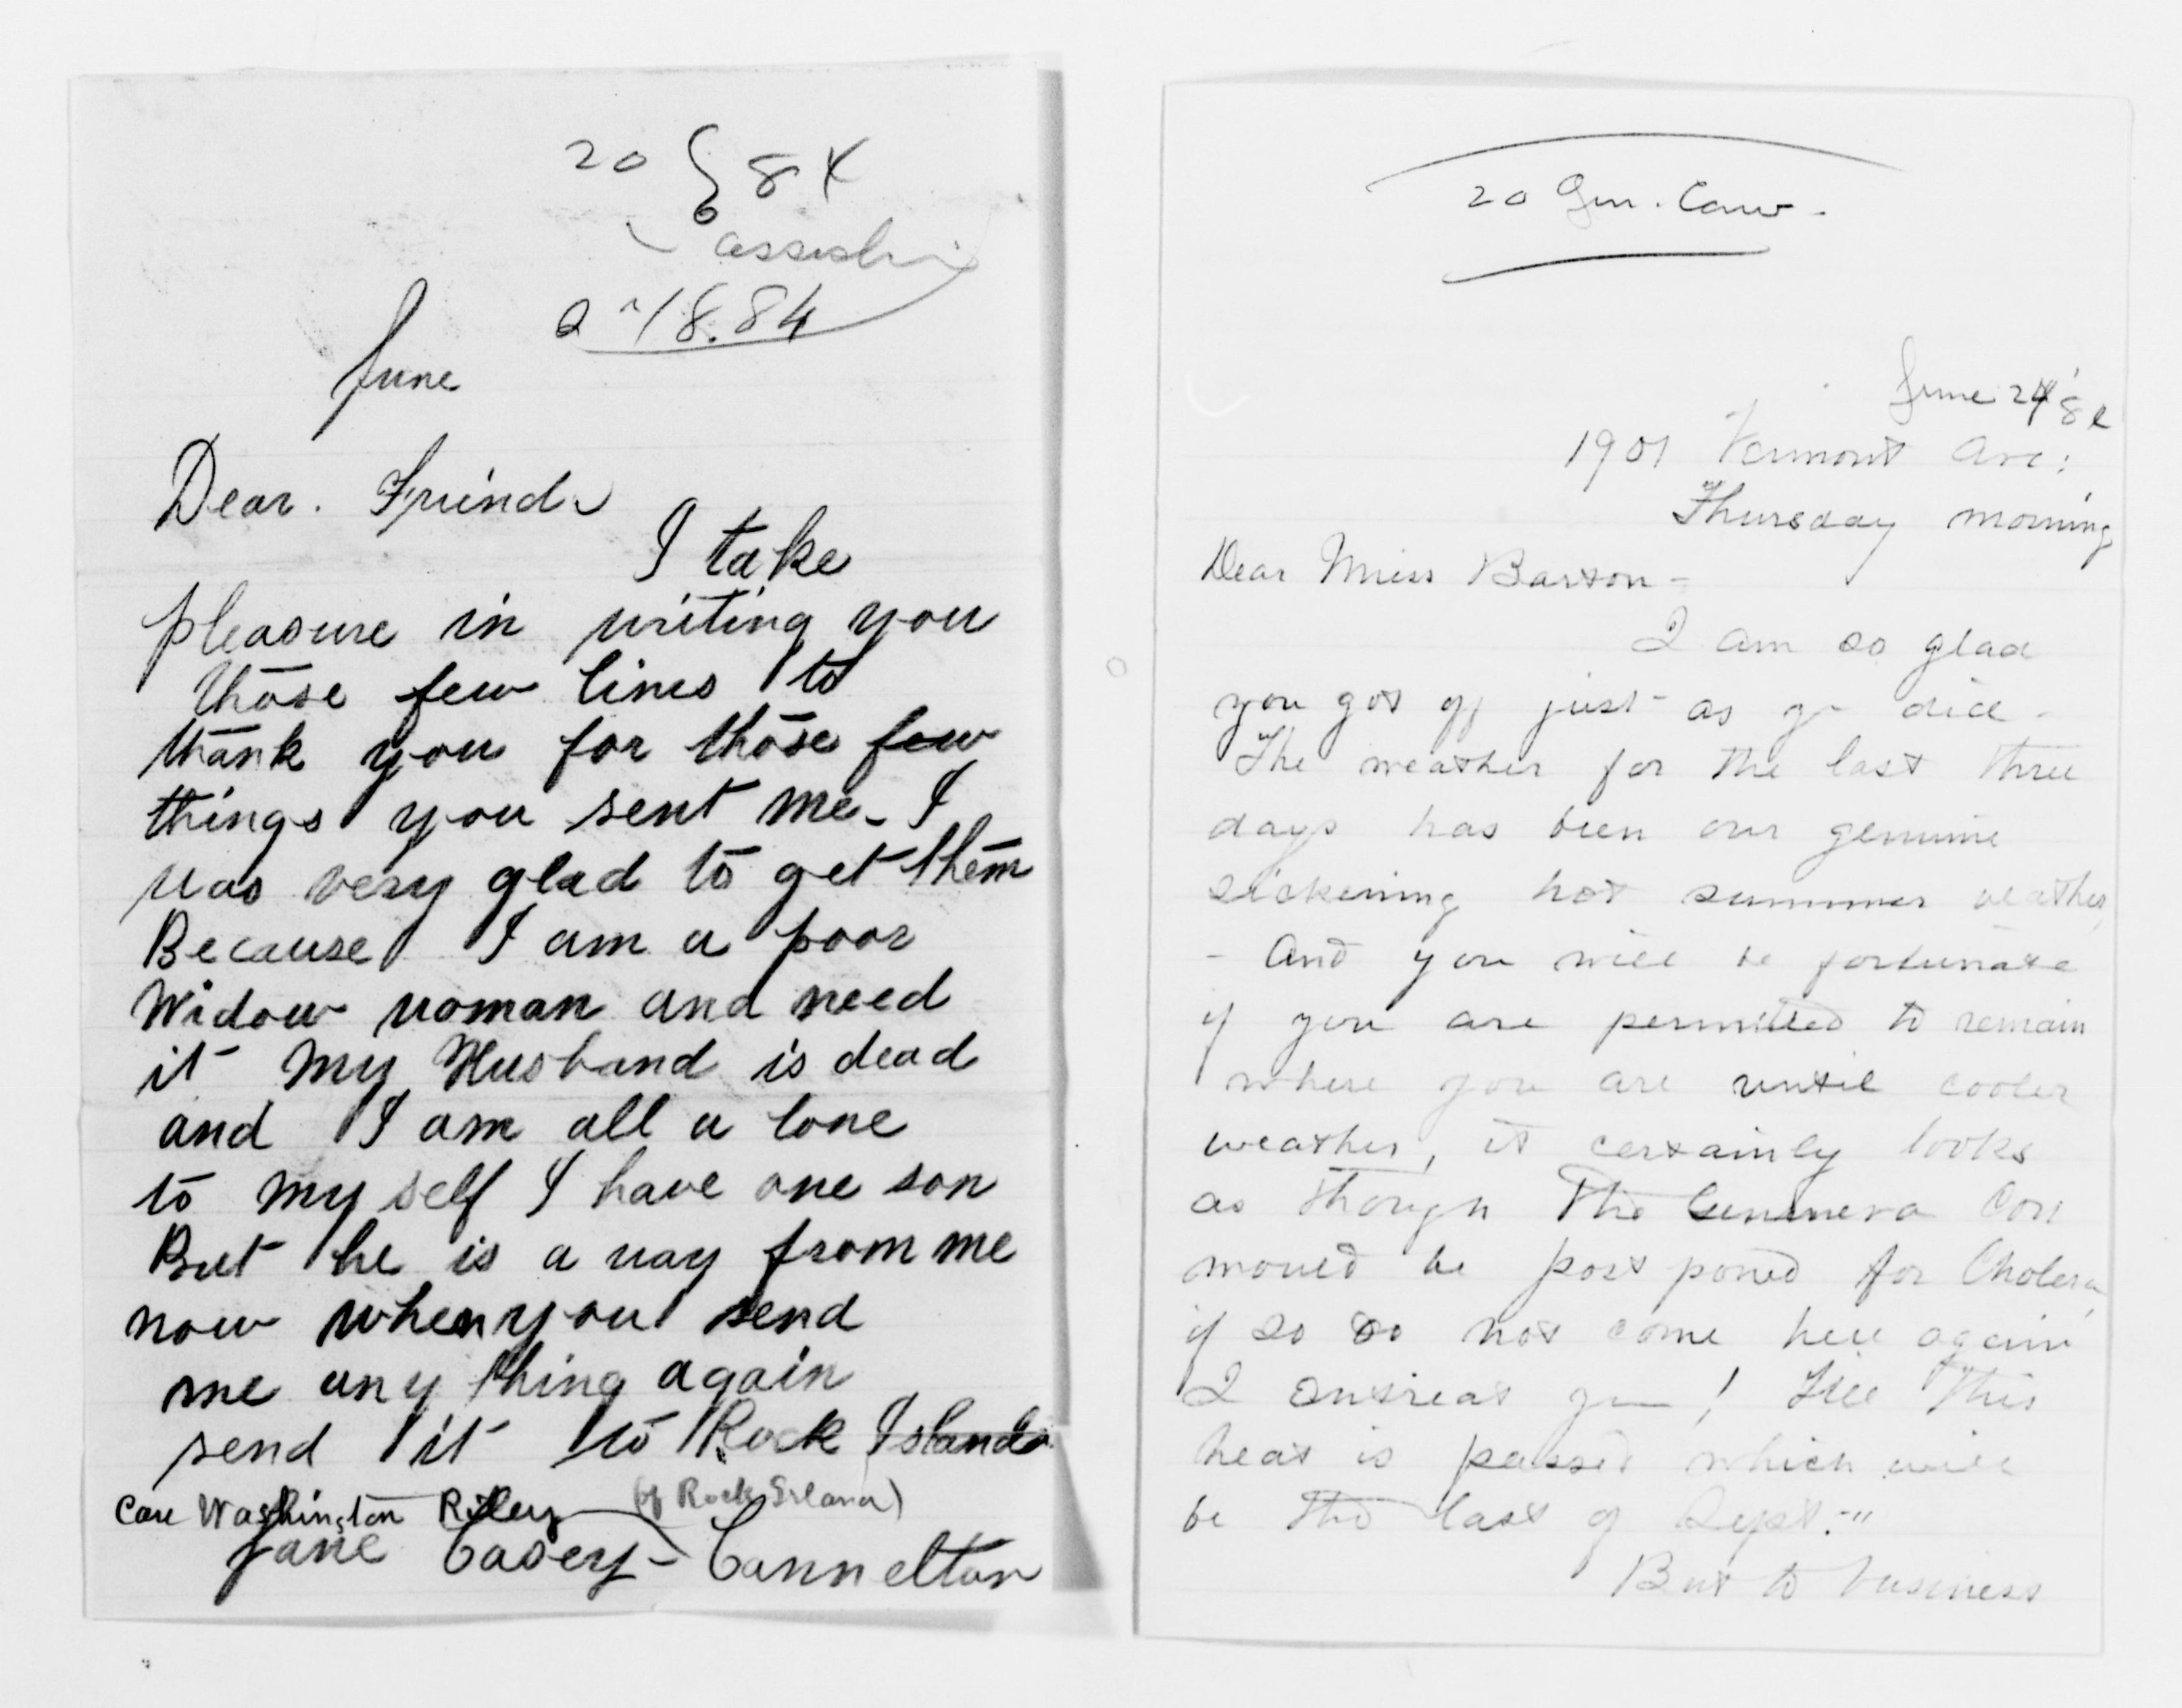 20 84
18.84
June
Dear. Frind
I take
pleasure in writing you
those few lines to
thank you for those few
things you sent me - I
was very glad to get them
Because I am a poor
Widow woman and need
it my Husband is dead
and I am all a lone
to my self I have one son
But he is a way from me
now when you send
me any thing again
send it to Rock Island
Care Washington Riley (of Rock Island)
Jane Casey - Cannelton
20 Gen.
June 24
1901 Vermont Ave:
Thursday morning
Dear Miss Barton -
I am so glad
you got off just as yo did -
The weather for the last three
days has been our genuine
sickening hot summer weather,
- And you will be fortunate
if you are permitted to remain
where you are until cooler
weather, it certainly looks
as though the Genneva Con
would be post poned for Cholera,
if so do not come here again
I entreat you! Till this
heat is passed which will
be the last of Sept. -"
But to business